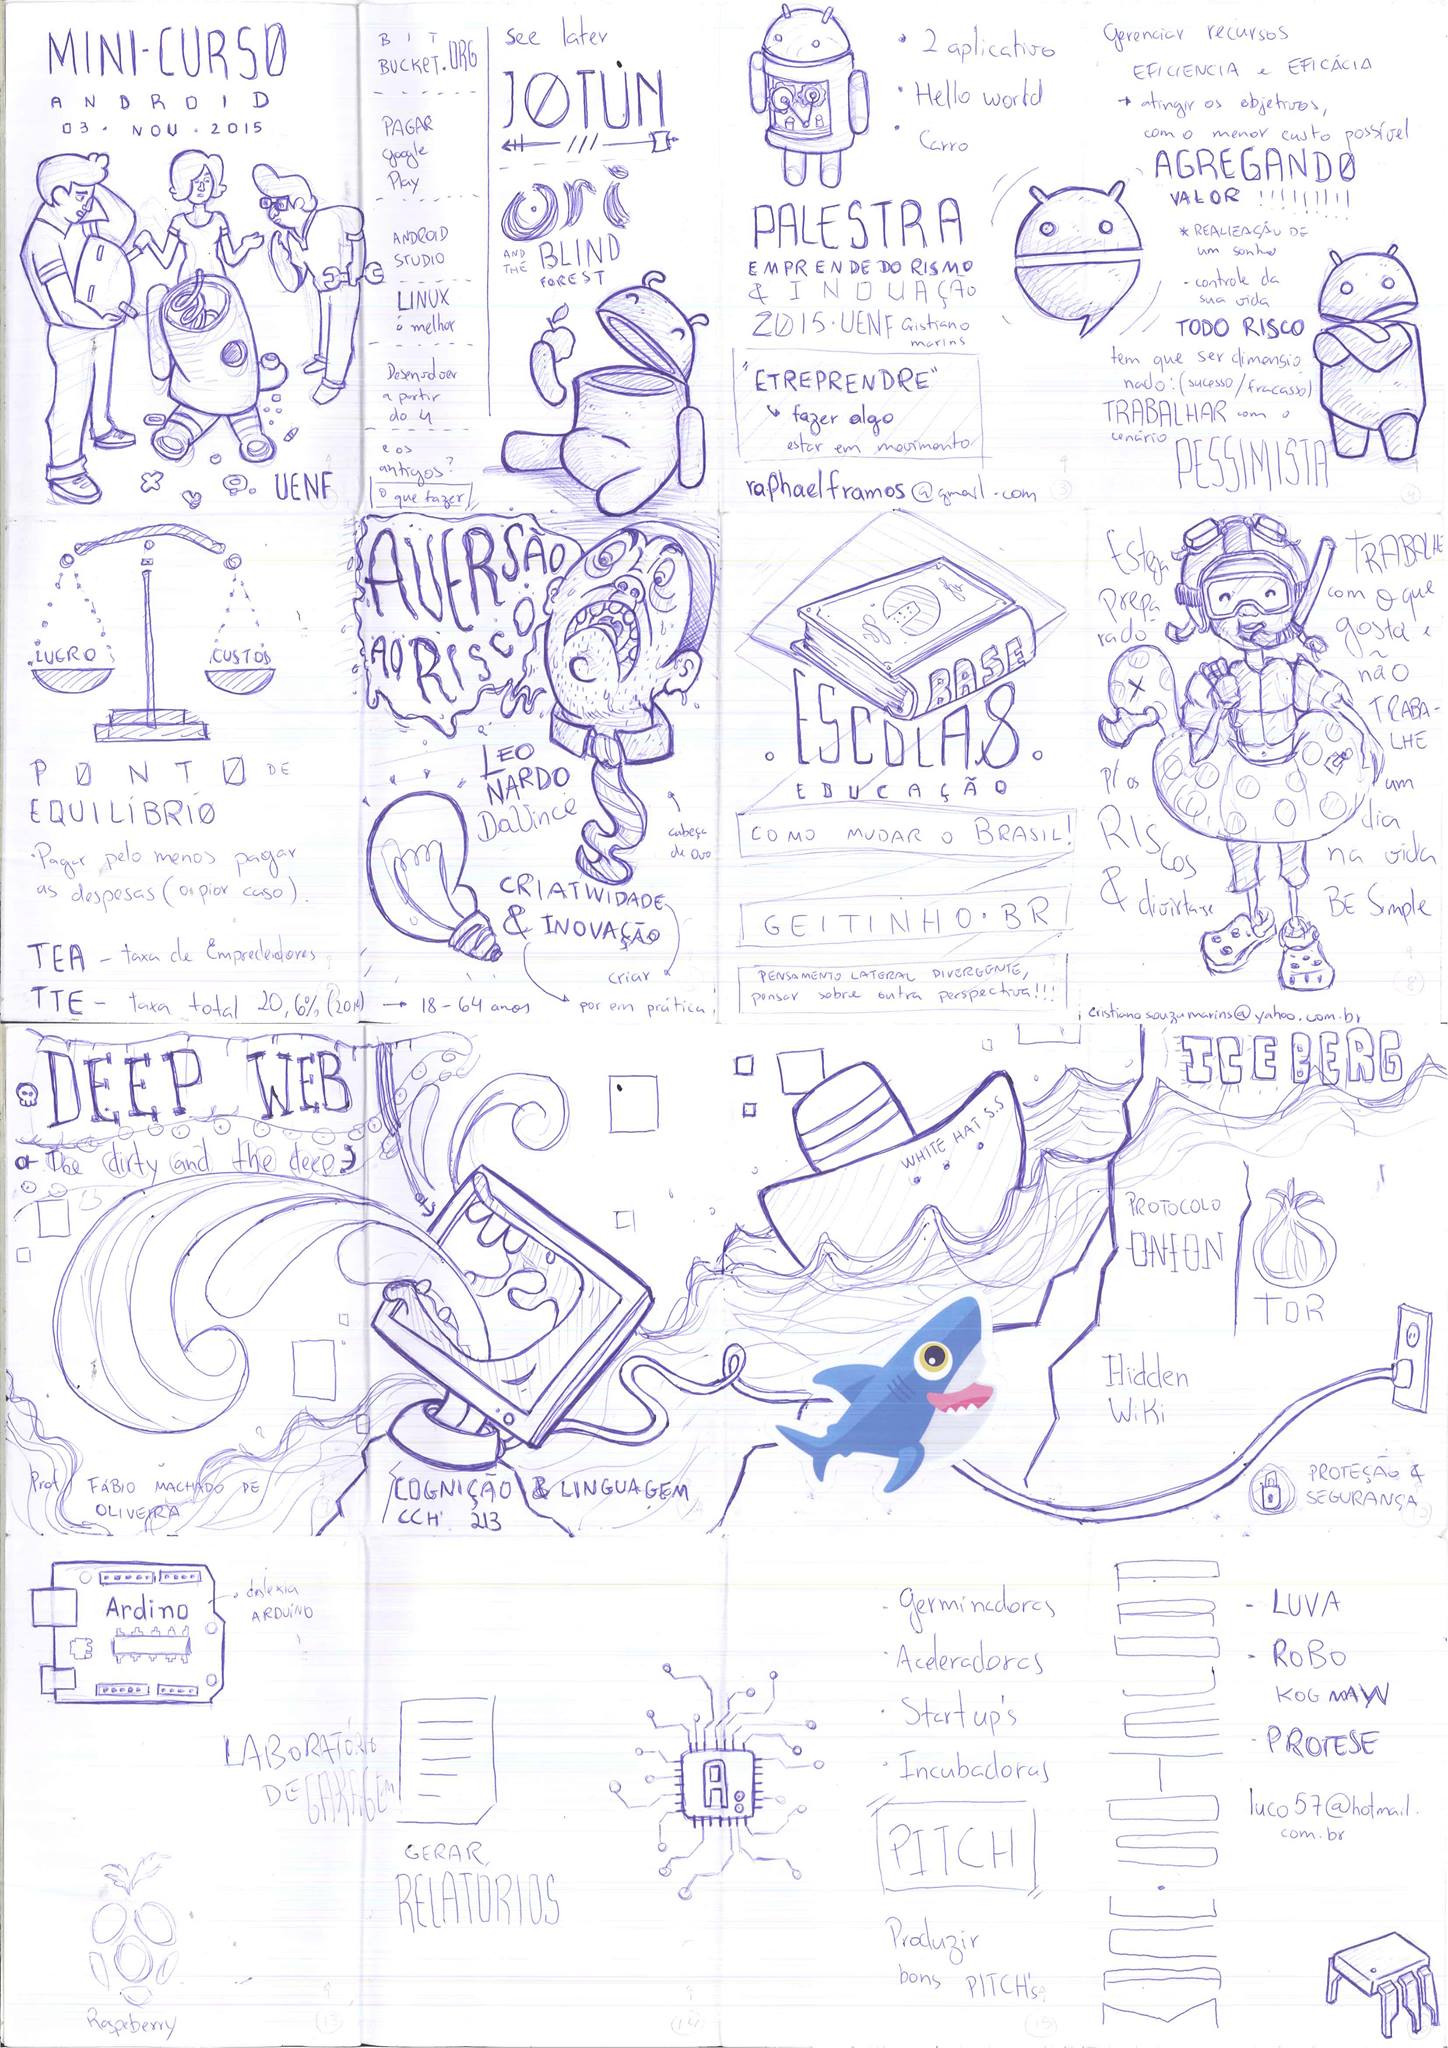 MINI-CURSO
ANDROID
03 · NOV · 2015
UENF
BIT
BUCKET.ORG
PAGAR
google
Play
ANDROID
STUDIO
LINUX
é melhor
Desenvolver
a partir
do 4
e os
antigos?
o que fazer
see later
JOTUN
Ori
AND THE BLIND
FOREST
• 2 aplicativo
• Hello world
• Carro
PALESTRA
EMPRENDEDORISMO
& INOVAÇÃO
2015·UENF Cristiano
marins
"ETREPRENDRE"
fazer algo
estar em movimento
raphaelframos@gmail.com
Gerenciar recursos
EFICIENCIA e EFICÁCIA
→ atingir os objetivos,
com o menor custo possível
AGREGANDO
VALOR !!!!!!!!!
* REALIZAÇÃO DE
um sonho
- controle da
sua vida
TODO RISCO
tem que ser dimensio
nado: (sucesso/fracasso)
TRABALHAR com o
cenário
PESSIMISTA
LUCRO
CUSTOS
PONTO DE
EQUILÍBRIO
• Pagar pelo menos pagar
as despesas (o pior caso).
TEA - taxa de Empreededores
TTE - taxa total 20,6% (2011) → 18-64 anos
AVERSÃO
AO RISCO
LEO
NARDO
DaVince
cabeça
de ovo
CRIATIVIDADE
& INOVAÇÃO
criar
por em prática!
BASE
ESCOLAS
EDUCAÇÃO
COMO MUDAR O BRASIL!
GEITINHO·BR
PENSAMENTO LATERAL DIVERGENTE,
pensar sobre outra perspectiva!!!
Esteja
prepa
rado
p/ os
RIScos
& divirta-se
TRABALHE
com o que
gosta e
não
TRABA-
LHE
um
dia
na vida
BE Simple
cristianosouzamarins@yahoo.com.br
DEEP WEB
the dirty and the deep
Prof FÁBIO MACHADO DE
OLIVEIRA
COGNIÇÃO & LINGUAGEM
CCH 213
WHITE HAT S.S
ICEBERG
PROTOCOLO
ONION
TOR
Hidden
Wiki
PROTEÇÃO &
SEGURANÇA
Ardino
dislexia
ARDUÍNO
LABORATÓRIO
DE GARAGEM
Raspeberry
GERAR
RELATÓRIOS
A
- Germinadoras
- Aceleradoras
• Start up's
• Incubadoras
PITCH
Produzir
bons PITCH's
- LUVA
- ROBO
KOG MAW
- PROTESE
luco57@hotmail.
com.br